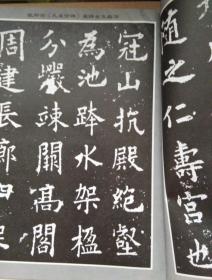 随之仁壽宮也
冠山抗殿絕壑
為池跨水架楹
分巖竦闕高閣
周建長廊四